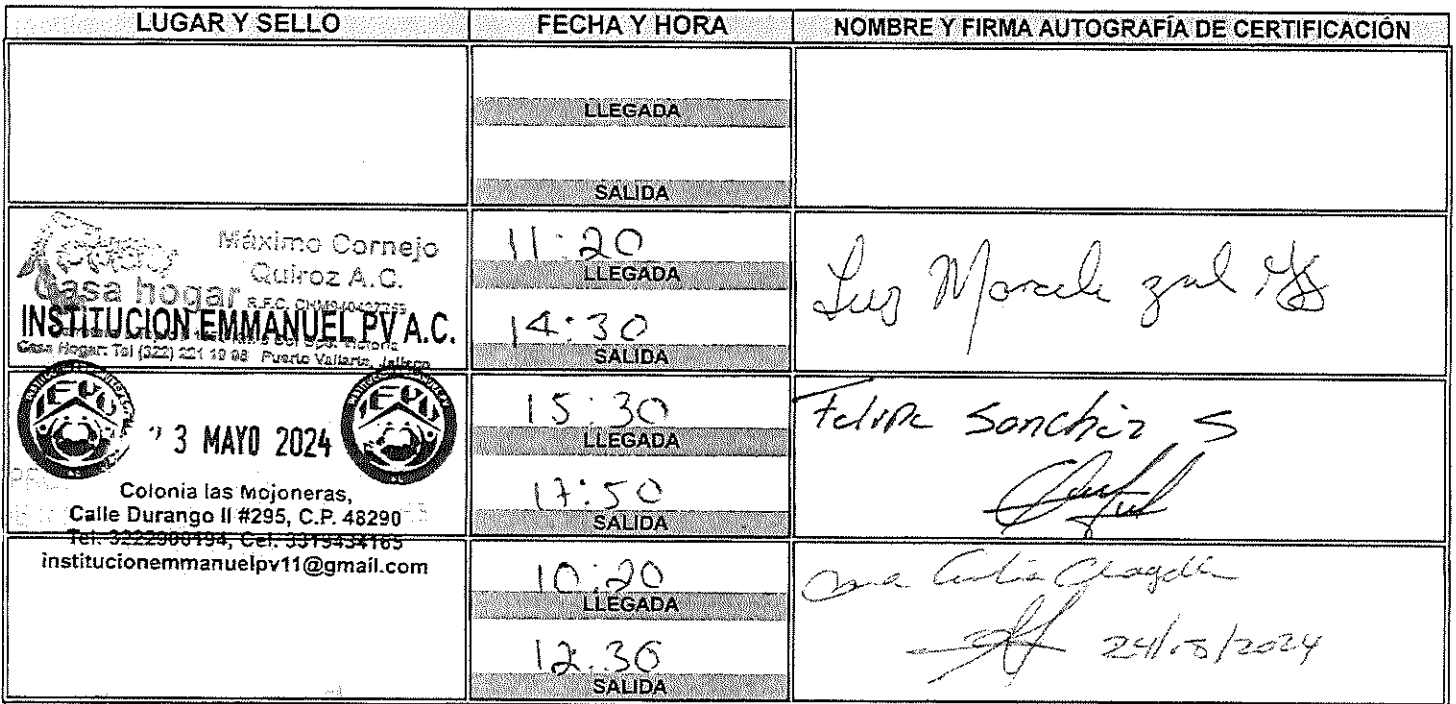 LUGAR Y SELLO FECHA Y HORA NOMBRE Y FIRMA AUTOGRAFÍA DE CERTIFICACIÓN
LLEGADA
SALIDA
Máximo Cornejo
Quiroz A.C.
Casa hogar
INSTITUCION EMMANUEL PV A.C.
Casa Hogar: Tel (322) 221 19 98 Puerto Vallarta, Jalisco
11:20
LLEGADA
14:30
SALIDA
Luz
3 MAYO 2024
Colonia las Mojoneras,
Calle Durango II #295, C.P. 48290
Tel. 3222900194, Cel. 3319434165
institucionemmanuelpv11@gmail.com
15:30
LLEGADA
17:50
SALIDA
Felipe Sanchez S
10:20
LLEGADA
12:30
SALIDA